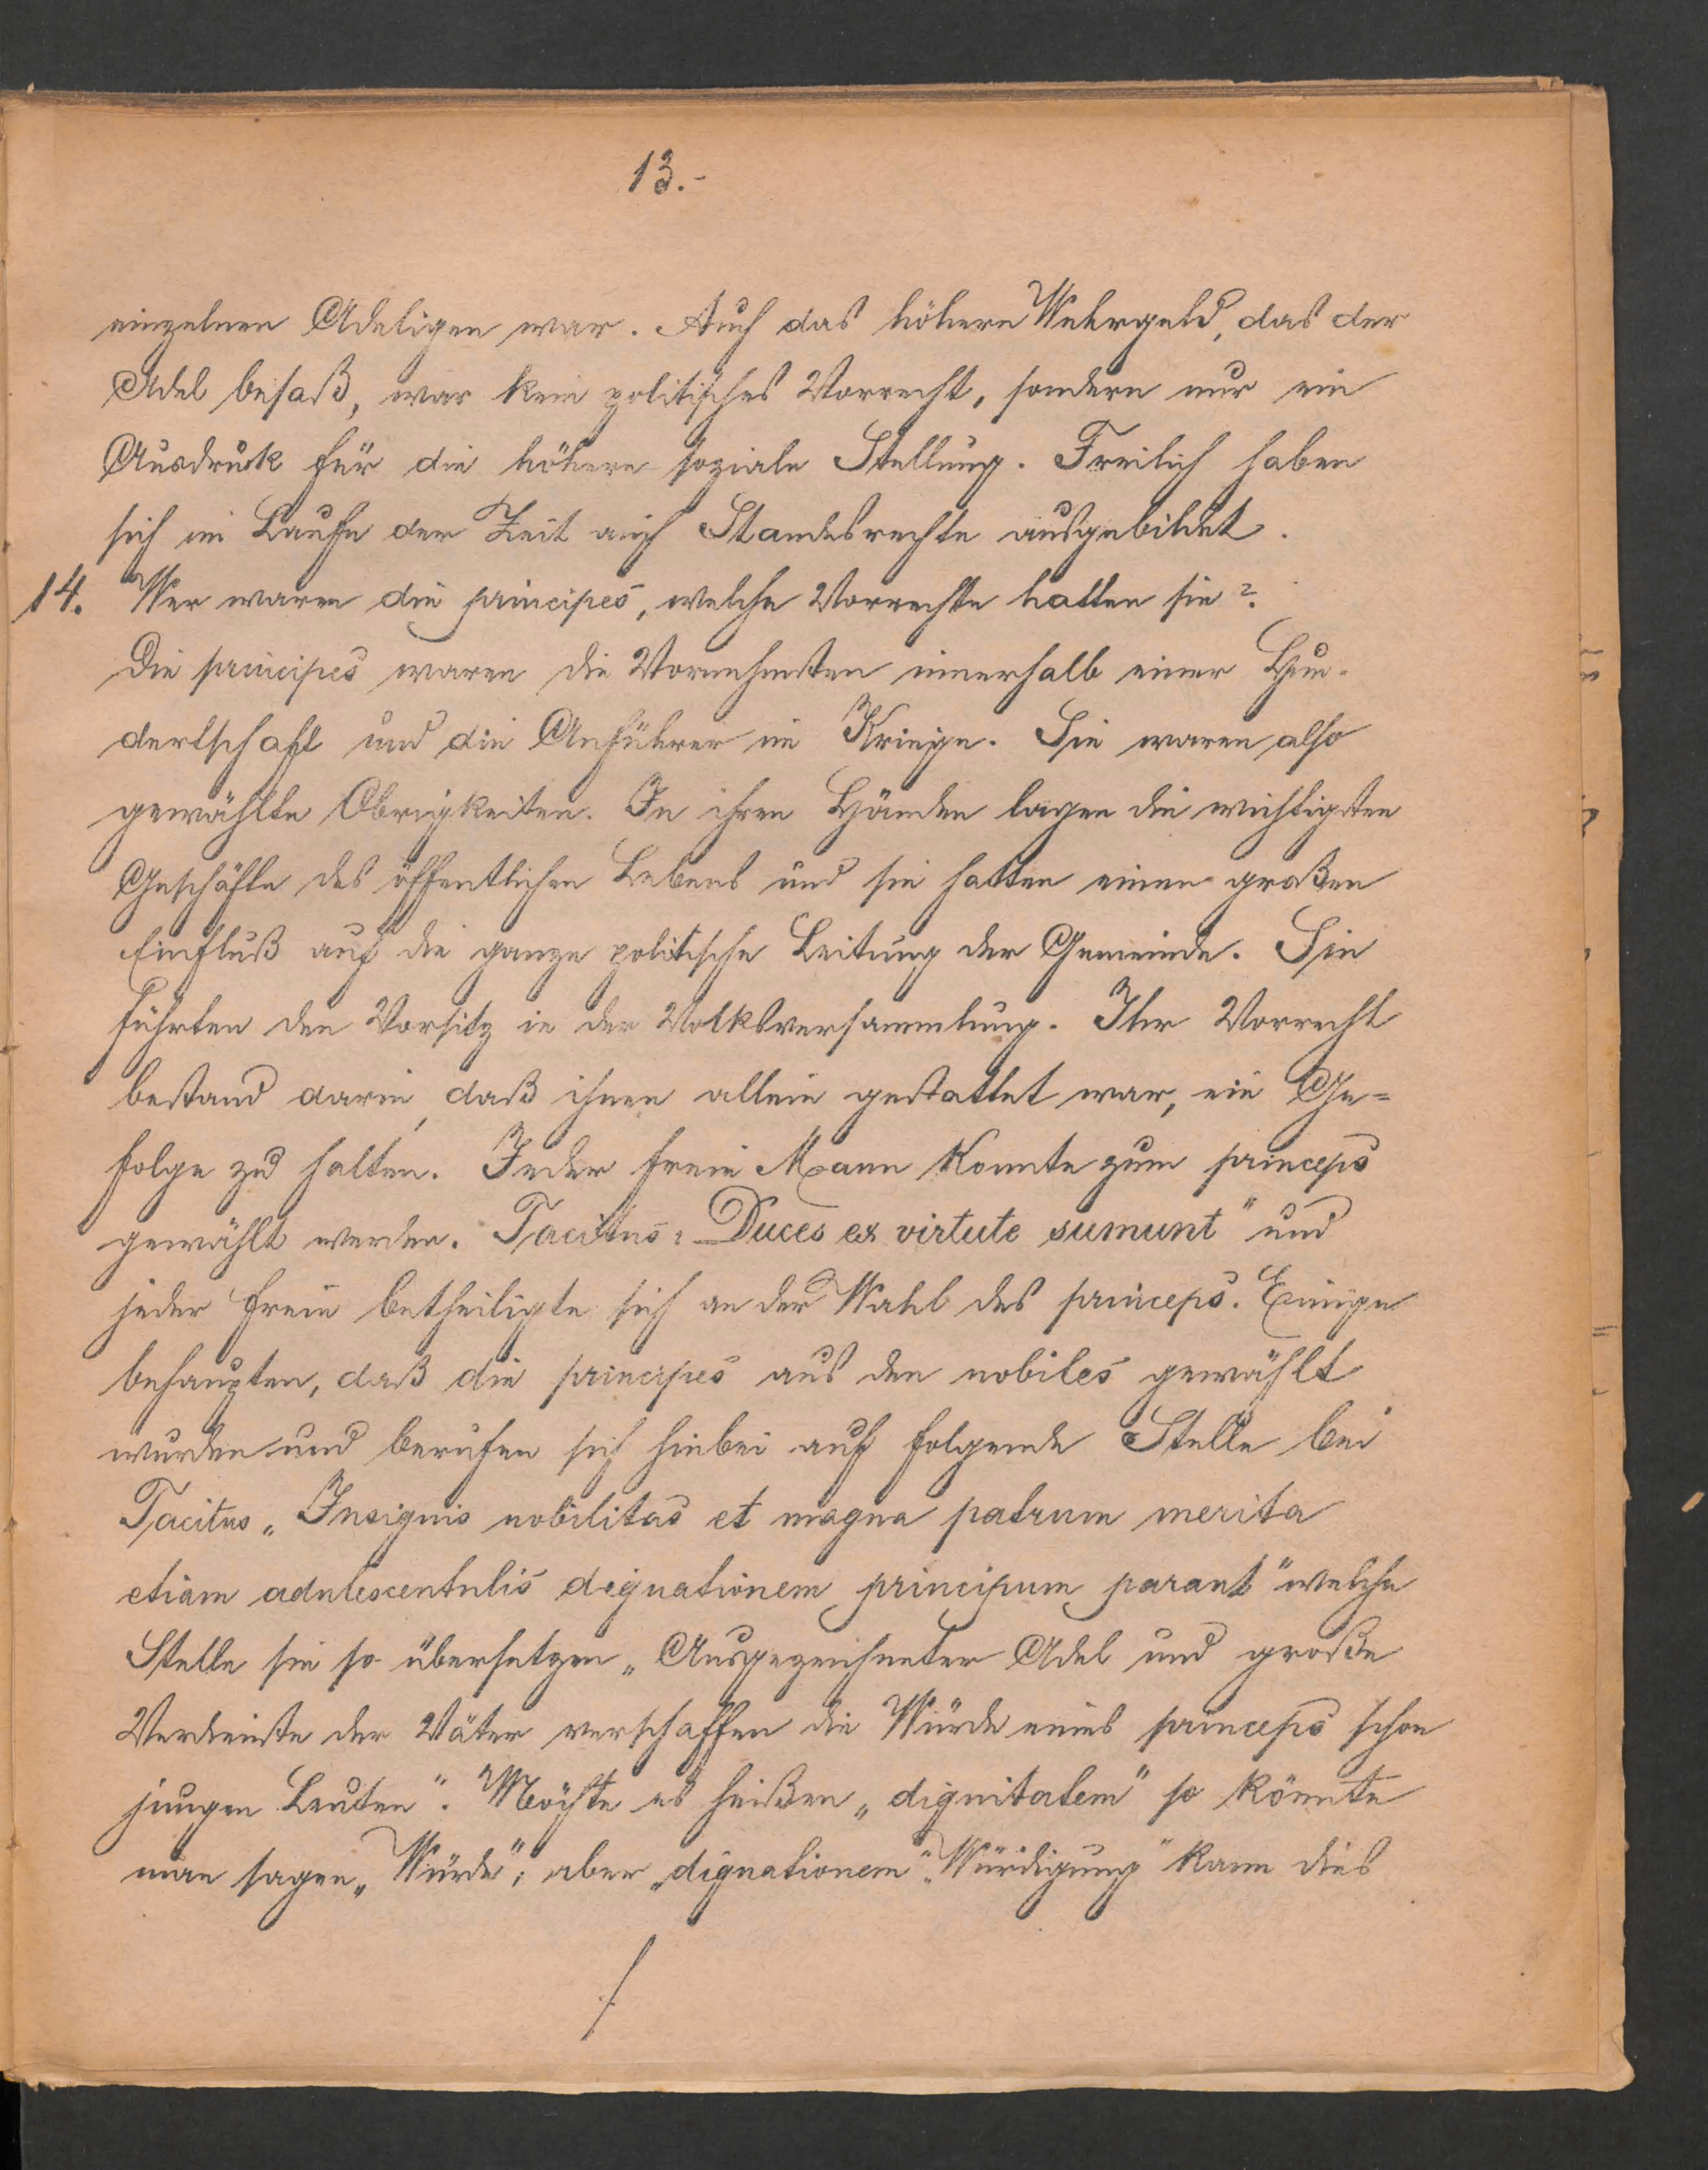 13.-
einzelnen Adeligen war. Auch das höhere Wehrgeld, das der
Adel besaß, war kein politisches Vorrecht, sondern nur ein
Ausdruck für die höhere soziale Stellung. Freilich haben
sich im Laufe der Zeit auch Standesrechte ausgebildet.
14. Wer waren die principes, welche Vorrechte hatten sie?
Die principes waren die Vornehmsten innerhalb einer Hun-
dertschaft und die Anführer im Kriege. Sie waren also
gewählte Obrigkeiten. In ihren Händen lagen die wichtigsten
Geschäfte des öffentlichen Lebens und sie hatten einen großen
Einfluß auf die ganze politische Leitung der Gemeinde. Sie
führten den Vorsitz in der Volksversammlung. Ihr Vorrecht
bestand darin, daß ihnen allein gestattet war, ein Ge=
folge zu halten. Jeder freie Mann konnte zum princeps
gewählt werden. Tacitus: Duces ex virtute sumunt" und
jeder freie betheiligte sich an der Wahl des princeps. Einige
behaupten, daß die principes aus den nobiles gewählt
wurden und berufen sich hiebei auf folgende Stelle bei
Tacitus „Insignis nobilitas et magna patrum merita
etiam adulescentulis dignationem principum parant" welche
Stelle sie so übersetzen „Ausgezeichneter Adel und große
Verdienste der Väter verschaffen die Würde eines princeps schon
jungen Leuten". Möchte es heißen „dignitatem" so könnte
man sagen „Würde"; aber „dignationem" „Würdigung" kann dies